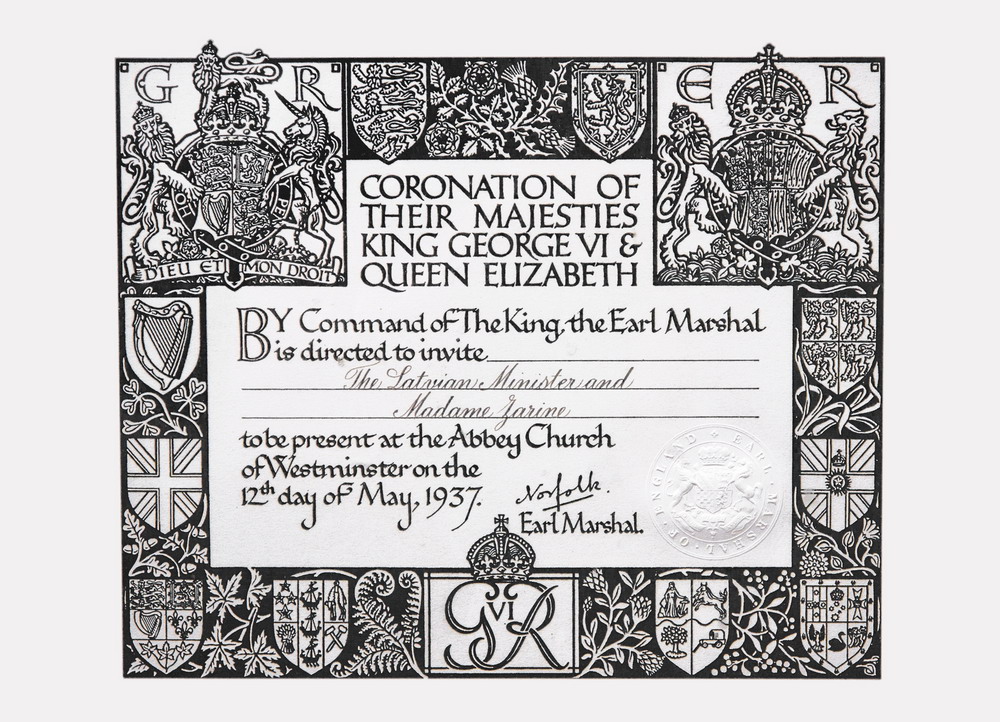 G R
E R
DIEU ET MON DROIT
CORONATION OF
THEIR MAJESTIES
KING GEORGE VI &
QUEEN ELIZABETH
BY Command of The King, the Earl Marshal
is directed to invite
The Latvian Minister and
Madame Zarine
to be present at the Abbey Church
of Westminster on the
12th day of May, 1937.
Norfolk.
Earl Marshal.
EARL · MARSHAL · OF · ENGLAND
G VI R